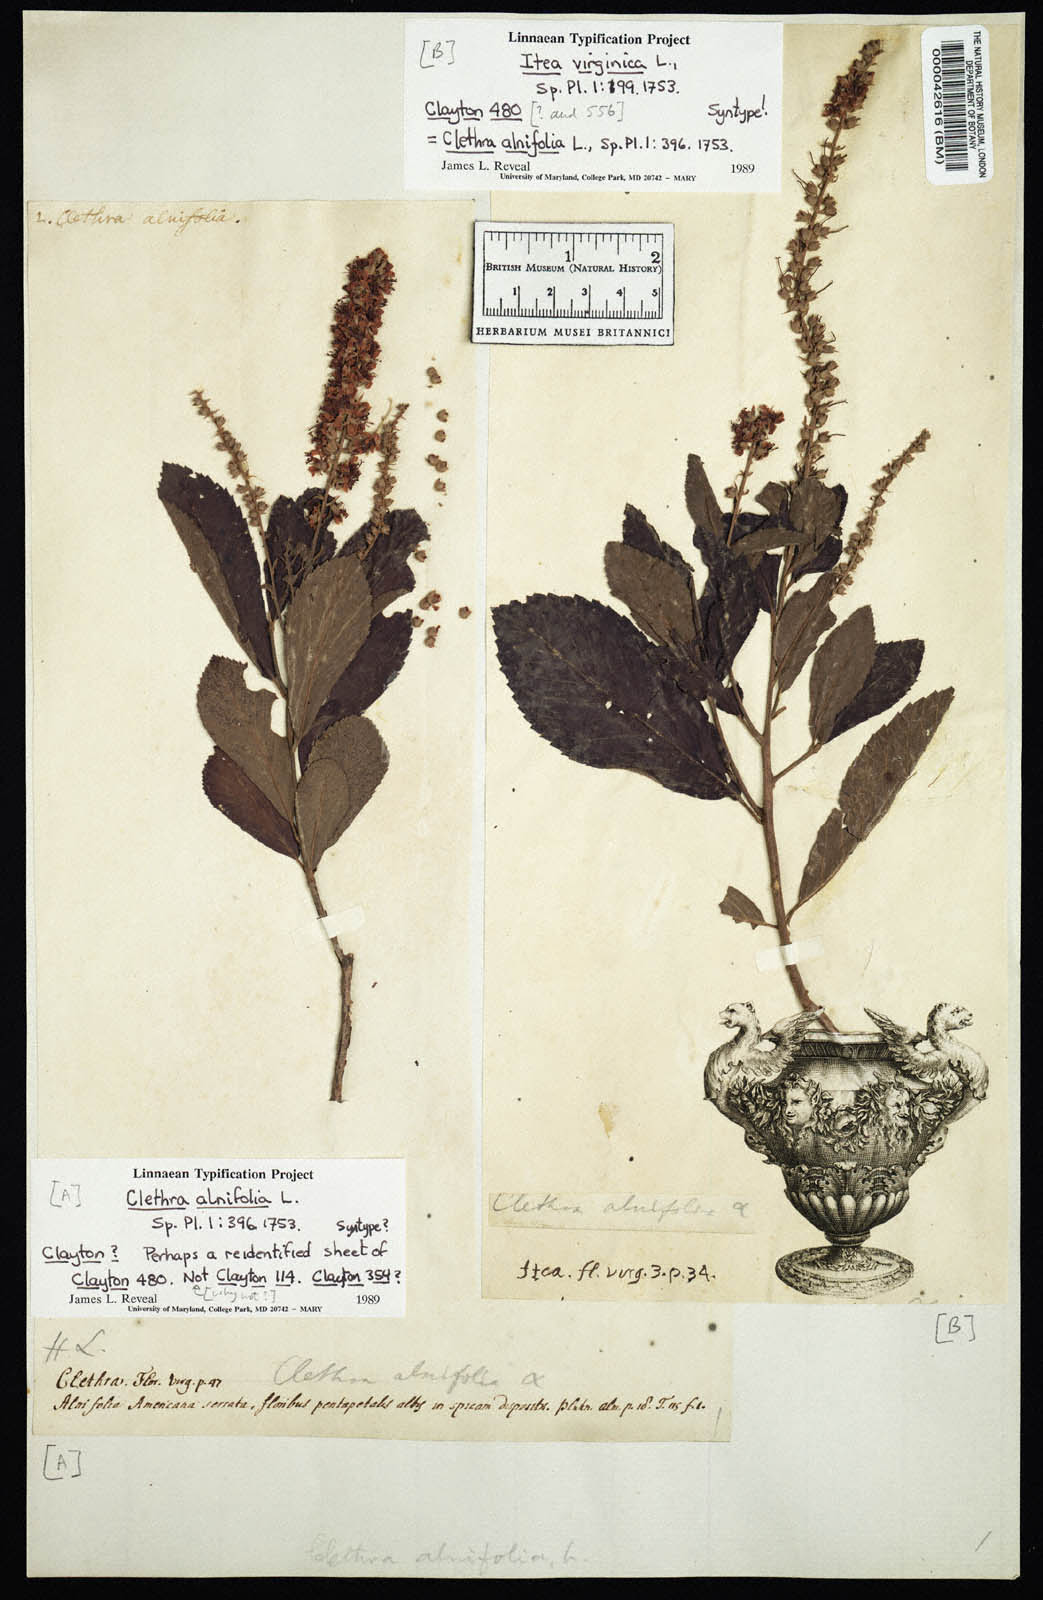 [B]
Linnaean Typification Project
Itea virginica L.,
Sp. Pl. 1: 199. 1753.
Clayton 480 [? and 556] Syntype!
= Clethra alnifolia L., Sp. Pl. 1: 396. 1753.
James L. Reveal 1989
University of Maryland, College Park, MD 20742 – MARY
THE NATURAL HISTORY MUSEUM, LONDON
DEPARTMENT OF BOTANY
000042616 (BM)
2. Clethra alnifolia.
1 2
BRITISH MUSEUM (NATURAL HISTORY)
1 2 3 4 5
HERBARIUM MUSEI BRITANNICI
[A]
Linnaean Typification Project
Clethra alnifolia L.
Sp. Pl. 1: 396 1753. Syntype?
Clayton? Perhaps a reidentified sheet of
Clayton 480. Not Clayton 114. Clayton 354?
[why not?]
James L. Reveal 1989
University of Maryland, College Park, MD 20742 – MARY
Clethra alnifolia α
Itea. fl. virg. 3. p. 34.
[B]
H L.
Clethra. Flor. Virg. p. 47 Clethra alnifolia α
Alni folia Americana serrata, floribus pentapetalis albis in spicam dispositis. Plukn. alm. p. 18. T. 115 f. 1.
[A]
Clethra alnifolia, L.
1